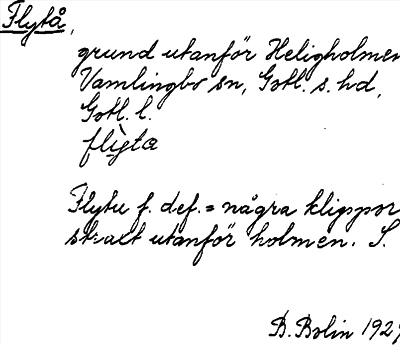 Flytå,
grund utanför Heligholmen
Vamlingbo sn, Gotl. s. hd,
Gotl. l.
flỳta
Flytu f. def. = några klippor
strax utanför holmen. S.
B. Bolin 192